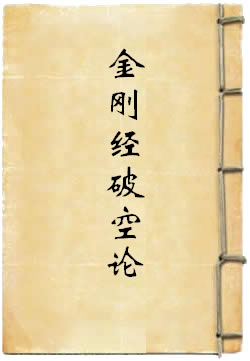 金刚经破空论